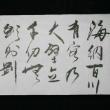 海納百川
有容乃
大壁立
千仞無
欲則剛